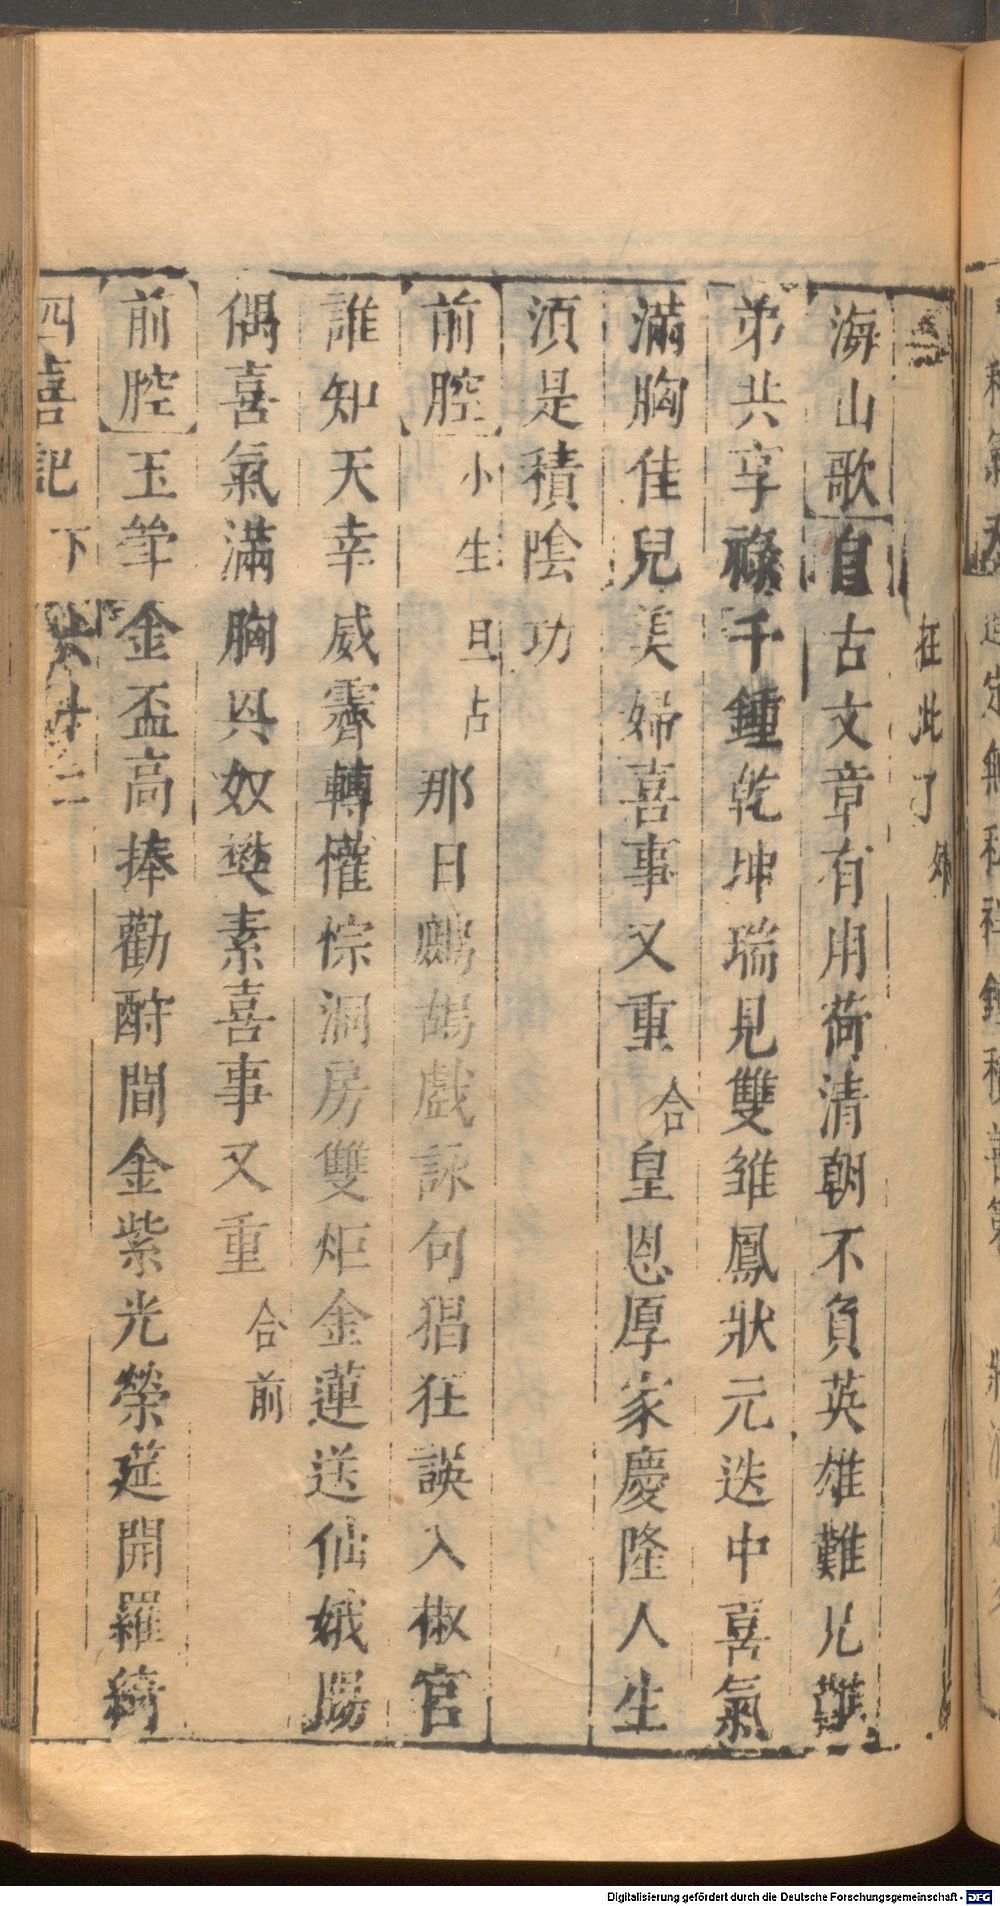 在此了
海山歌自古文章有用荷清朝不負英雄難兄難
弟共享祿千鍾乾坤瑞見雙雛鳳狀元迭中喜氣
滿胸佳兒美婦喜事又重合皇恩厚家慶隆人生
須是積陰功
前腔小生旦占那日鷓鴣戲詠句猖狂誤入椒宮
誰知天幸威霽轉懽悰洞房雙炬金蓮送仙娥賜
偶喜氣滿胸與奴樊素喜事又重合前
前腔玉斝金盃高捧勸酧間金紫光榮筵開羅綺
四喜記下 六十二
Digitalisierung gefördert durch die Deutsche Forschungsgemeinschaft - DFG